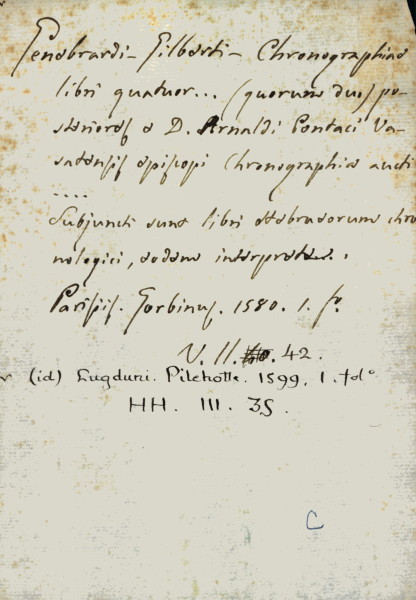 Genebrardi - Gilberti - Chronographiae
libri quatuor... (quorum duo) po-
steriores e D. Arnaldi Pontaci Va-
satensis episcopi Chronographia aucti
....
Subjuncti sunt libri Hebraeorum chro
nologici, eodem interprete.
Parisiis. Gorbinus. 1580. 1. fo.
V. II. 42.
(id) Lugduni. Pilehotte. 1599. 1. fdº
HH. III. 35.
C